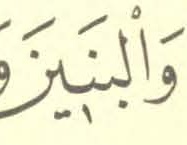 وَالْبَنِينَ وَ